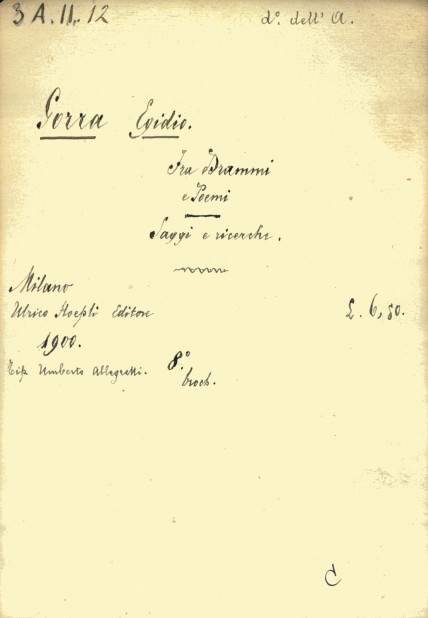 3 A. 11. 12
d.° dell' A.
Gorra Egidio.
Fra Drammi
e Poemi
Saggi e ricerche.
Milano
Ulrico Hoepli Editore
£. 6,50.
1900.
Tip. Umberto Allegretti.
8.°
broch.
C